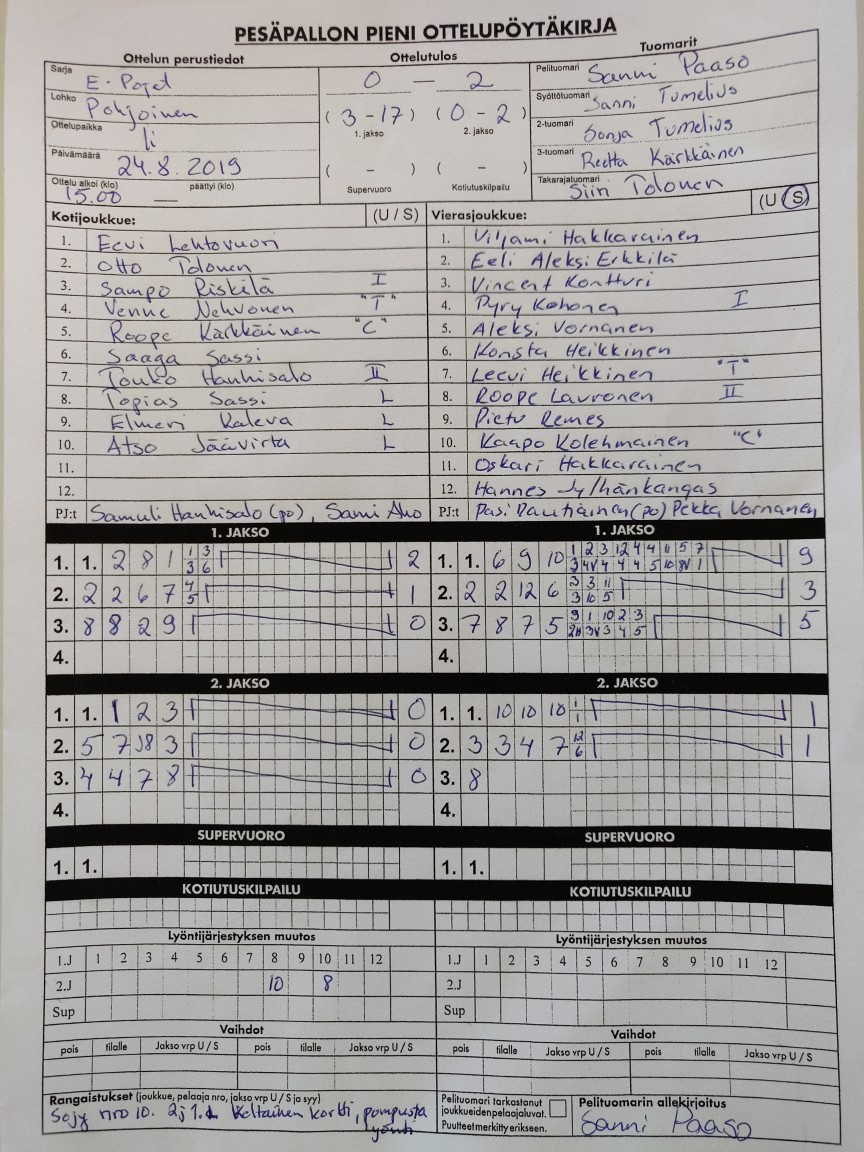 PESÄPALLON PIENI OTTELUPÖYTÄKIRJA
Ottelun perustiedot Ottelutulos Tuomarit
Sarja E-Pojat
Lohko Pohjoinen
Ottelupaikka Ii
Päivämäärä 24.8.2019
Ottelu alkoi (klo) 15.00 päättyi (klo) —
0 — 2
(3-17) (0-2)
1. jakso 2. jakso
( - ) ( - )
Supervuoro Kotiutuskilpailu
Pelituomari Sanni Paaso
Syöttötuomari Sanni Tumelius
2-tuomari Sonja Tumelius
3-tuomari Reetta Kärkkäinen
Takarajatuomari Siiri Tolonen
Kotijoukkue: (U / S)
1. Eevi Lehtovuori
2. Otto Tolonen
3. Sampo Riskilä I
4. Venne Nehvonen "T"
5. Roope Kärkkäinen "C"
6. Saaga Sassi
7. Touko Hanhisalo II
8. Topias Sassi L
9. Elmeri Kaleva L
10. Atso Jäävirta L
11.
12.
PJ:t Samuli Hanhisalo (po), Sami Aho
Vierasjoukkue: (U S)
1. Viljami Hakkarainen
2. Eeli Aleksi Erkkilä
3. Vincent Kontturi
4. Pyry Kohonen I
5. Aleksi Vornanen
6. Konsta Heikkinen
7. Leevi Heikkinen "T"
8. Roope Lauronen II
9. Pietu Remes
10. Kaapo Kolehmainen "C"
11. Oskari Hakkarainen
12. Hannes Jylhänkangas
PJ:t Pasi Rautiainen (po) Pekka Vornanen
1. JAKSO 1. JAKSO
1. 1. 2 8 1 1 3 2
3 6
2. 2 2 6 7 4 1
5
3. 8 8 2 9 0
4.
1. 1. 6 9 10 1 2 3 12 4 4 11 5 7 9
3 4V 4 4 4 5 10 8V 1
2. 2 2 12 6 3 3 11 3
3 10 5
3. 7 8 7 5 9 1 10 2 3 5
3V 3 4 5
4.
2. JAKSO 2. JAKSO
1. 1. 1 2 3 0
2. 5 7 8 3 0
3. 4 4 7 8 0
4.
1. 1. 10 10 10 1 1
1
2. 3 3 4 7 12 1
6
3. 8
4.
SUPERVUORO SUPERVUORO
1. 1. 1. 1.
KOTIUTUSKILPAILU KOTIUTUSKILPAILU
Lyöntijärjestyksen muutos Lyöntijärjestyksen muutos
1.J 1 2 3 4 5 6 7 8 9 10 11 12 1.J 1 2 3 4 5 6 7 8 9 10 11 12
2.J 10 8 2.J
Sup Sup
Vaihdot Vaihdot
pois tilalle Jakso vrp U / S pois tilalle Jakso vrp U / S pois tilalle Jakso vrp U / S pois tilalle Jakso vrp U / S
Rangaistukset (joukkue, pelaaja nro, jakso vrp U / S ja syy)
SoJy nro 10. 2j 1. Keltainen kortti, pompusta
lyönti
Pelituomari tarkastanut
joukkueiden pelaajaluvat.
Puutteet merkitty erikseen.
Pelituomarin allekirjoitus
Sanni Paaso